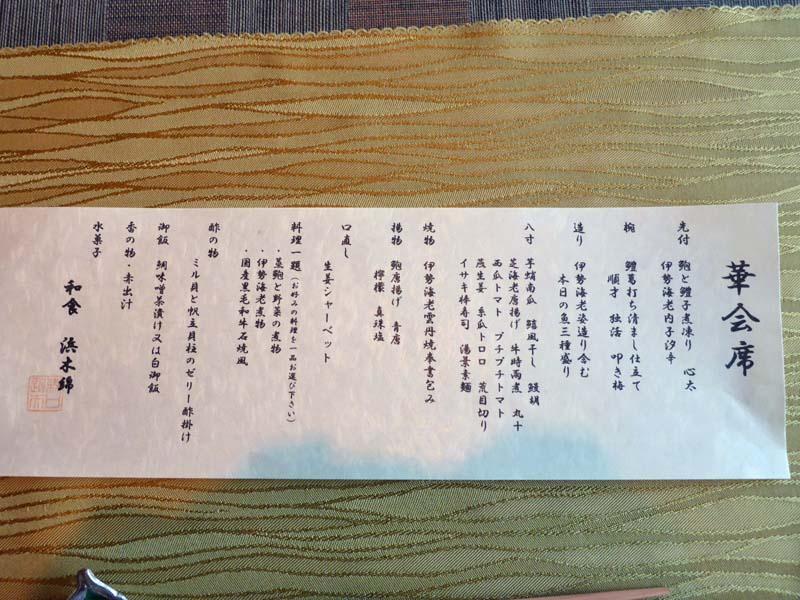 華会席
先付　鮑と鱧子煮凍り　心太
伊勢海老内子汐辛
椀　鱧葛打ち清まし仕立て
順才　独活　叩き梅
造り　伊勢海老姿造り含む
本日の魚三種盛り
八寸　芋蛸南瓜　鱚風干し　鰻胡
芝海老唐揚げ　牛時雨煮　丸十
西瓜トマト　プチプチトマト
蒸生姜　糸瓜トロロ　荒目切り
イサキ棒寿司　湯葉素麺
焼物　伊勢海老雲丹焼奉書包み
揚物　鮑唐揚げ　青唐
檸檬　真珠塩
口直し
生姜シャーベット
料理一題（お好みの料理を一品お選び下さい）
・蒸鮑と野菜の煮物
・伊勢海老煮物
・国産黒毛和牛石焼風
酢の物
ミル貝と帆立貝柱のゼリー酢掛け
御飯　鯛味噌茶漬け又は白御飯
香の物・赤出汁
水菓子
和食　浜木綿